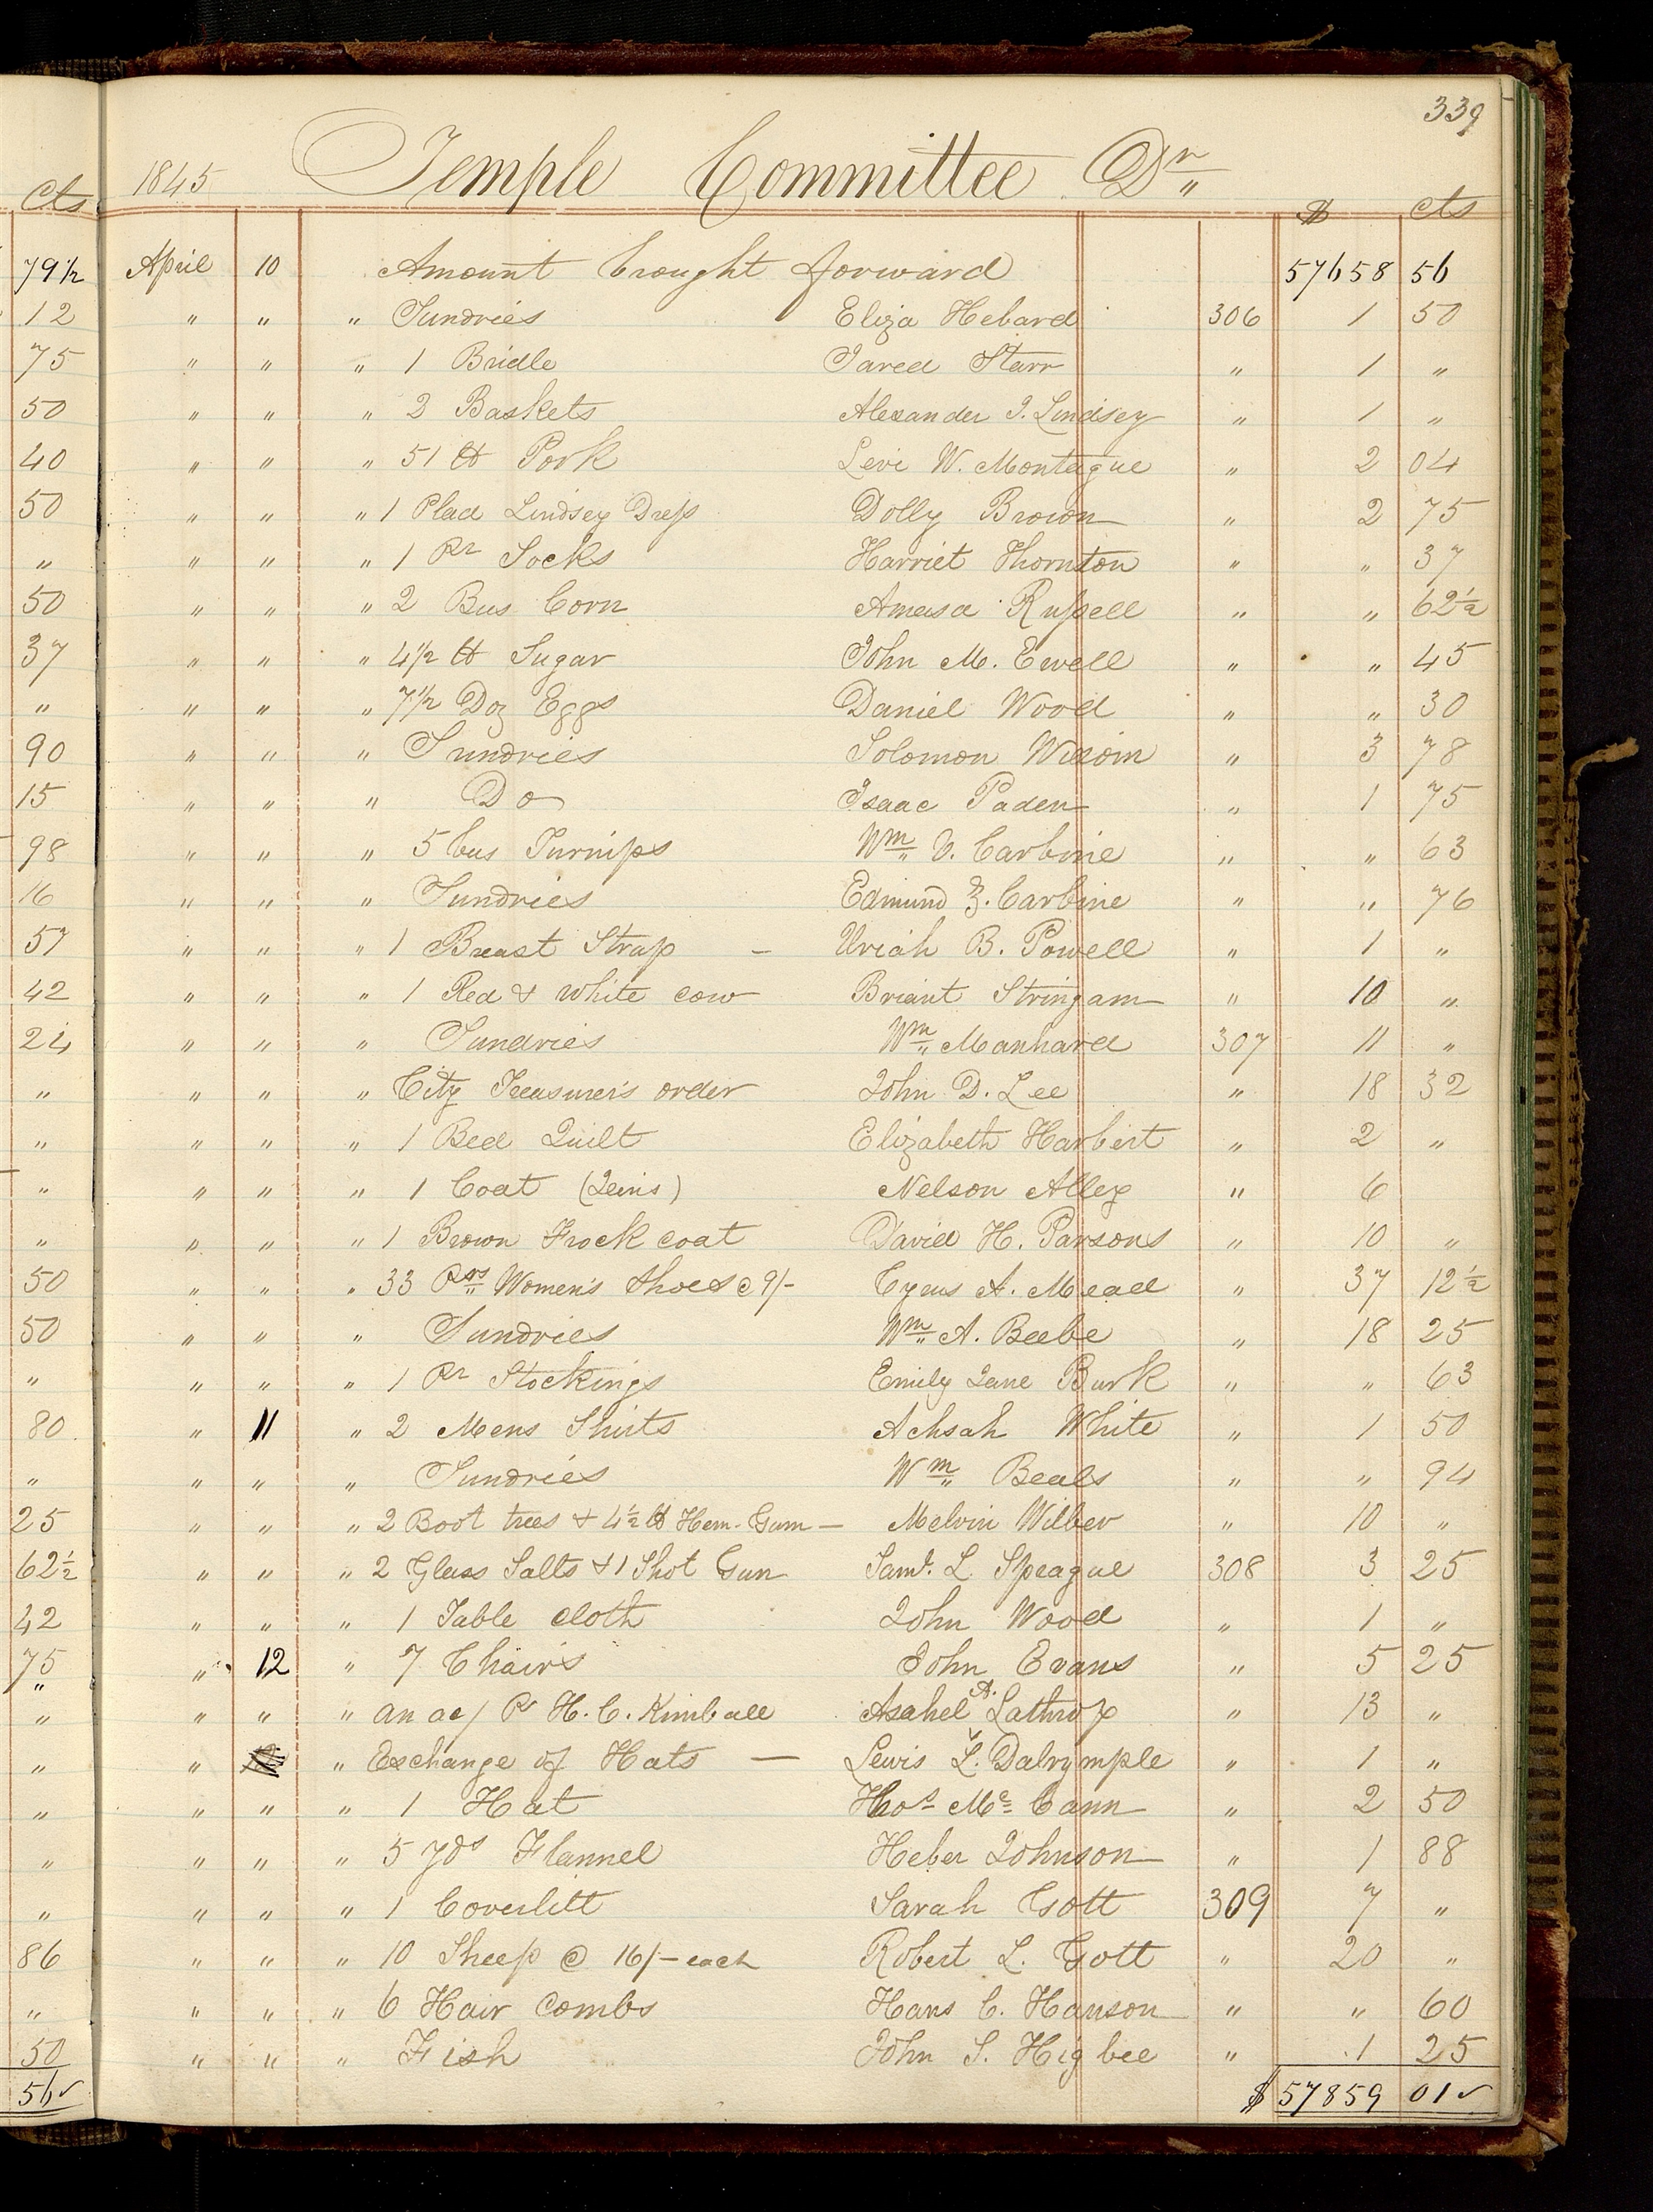 339
1845 Temple Committee Dr
Cts $ cts
79½ April 10 Amount brought forward 57658 56
12 " " " Sundries Eliza Hebard 306 1 50
75 " " " 1 Bridle Jared Starr " 1 "
50 " " " 2 Baskets Alexander J. Lindsey " 1 "
40 " " " 51 ℔ Pork Levi W. Montague " 2 04
50 " " " 1 Plad Lindsey Dress Dolly Brown " 2 75
" " " " 1 Pr Socks Harriet Thornton " " 37
50 " " " 2 Bus Corn Amasa Russell " " 62½
37 " " " 4½ ℔ Sugar John M. Ewell " " 45
" " " " 7½ Doz Eggs Daniel Wood " " 30
90 " " " Sundries Solomon Wixom " 3 78
15 " " " Do Isaac Paden " 1 75
98 " " " 5 bus Turnips Wm V. Carbine " " 63
16 " " " Sundries Edmund Z. Carbine " " 76
57 " " " 1 Breast Strap – Uriah B. Powell " 1 "
42 " " " 1 Red & white cow Briant Stringam " 10 "
24 " " " Sundries Wm Manhard 307 11 "
" " " " City Treasurer's order John D. Lee " 18 32
" " " " 1 Bed Quilt Elizabeth Harbert " 2 "
" " " " 1 Coat (Jeins) Nelson Alley " 6
" " " " 1 Brown Frock coat David H. Parsons " 10 "
50 " " " 33 Prs Women's Shoes @ 9/- Cyrus A. Mead " 37 12½
50 " " " Sundries Wm A. Beebe " 18 25
" " " " 1 Pr Stockings Emily Jane Burk " " 63
80 " 11 " 2 Mens Shirts Achsah White " 1 50
" " " " Sundries Wm Beals " " 94
25 " " " 2 Boot trees & 4½ ℔ Hem. Gum – Melvin Wilber " 10 "
62½ " " " 2 Glass Salts & 1 Shot Gun Saml. L. Speague 308 3 25
42 " " " 1 Table cloth John Wood " 1 "
75 " 12 " 7 Chairs John Evans " 5 25
" " " " an ac/ Pr H. C. Kimball Asahel A. Lathrop " 13 "
" " " Exchange of Hats — Lewis L. Dalrymple " 1 "
" " " " 1 Hat Thos Mc Cann " 2 50
" " " " 5 yds Flannel Heber Johnson " 1 88
" " " " 1 Coverlitt Sarah Gott 309 7 "
86 " " " 10 Sheep @ 16/- each Robert L. Gott " 20 "
" " " " 6 Hair Combs Hans C. Hanson " " 60
50 " " " Fish John S. Higbee " 1 25
56 $ 57859 01